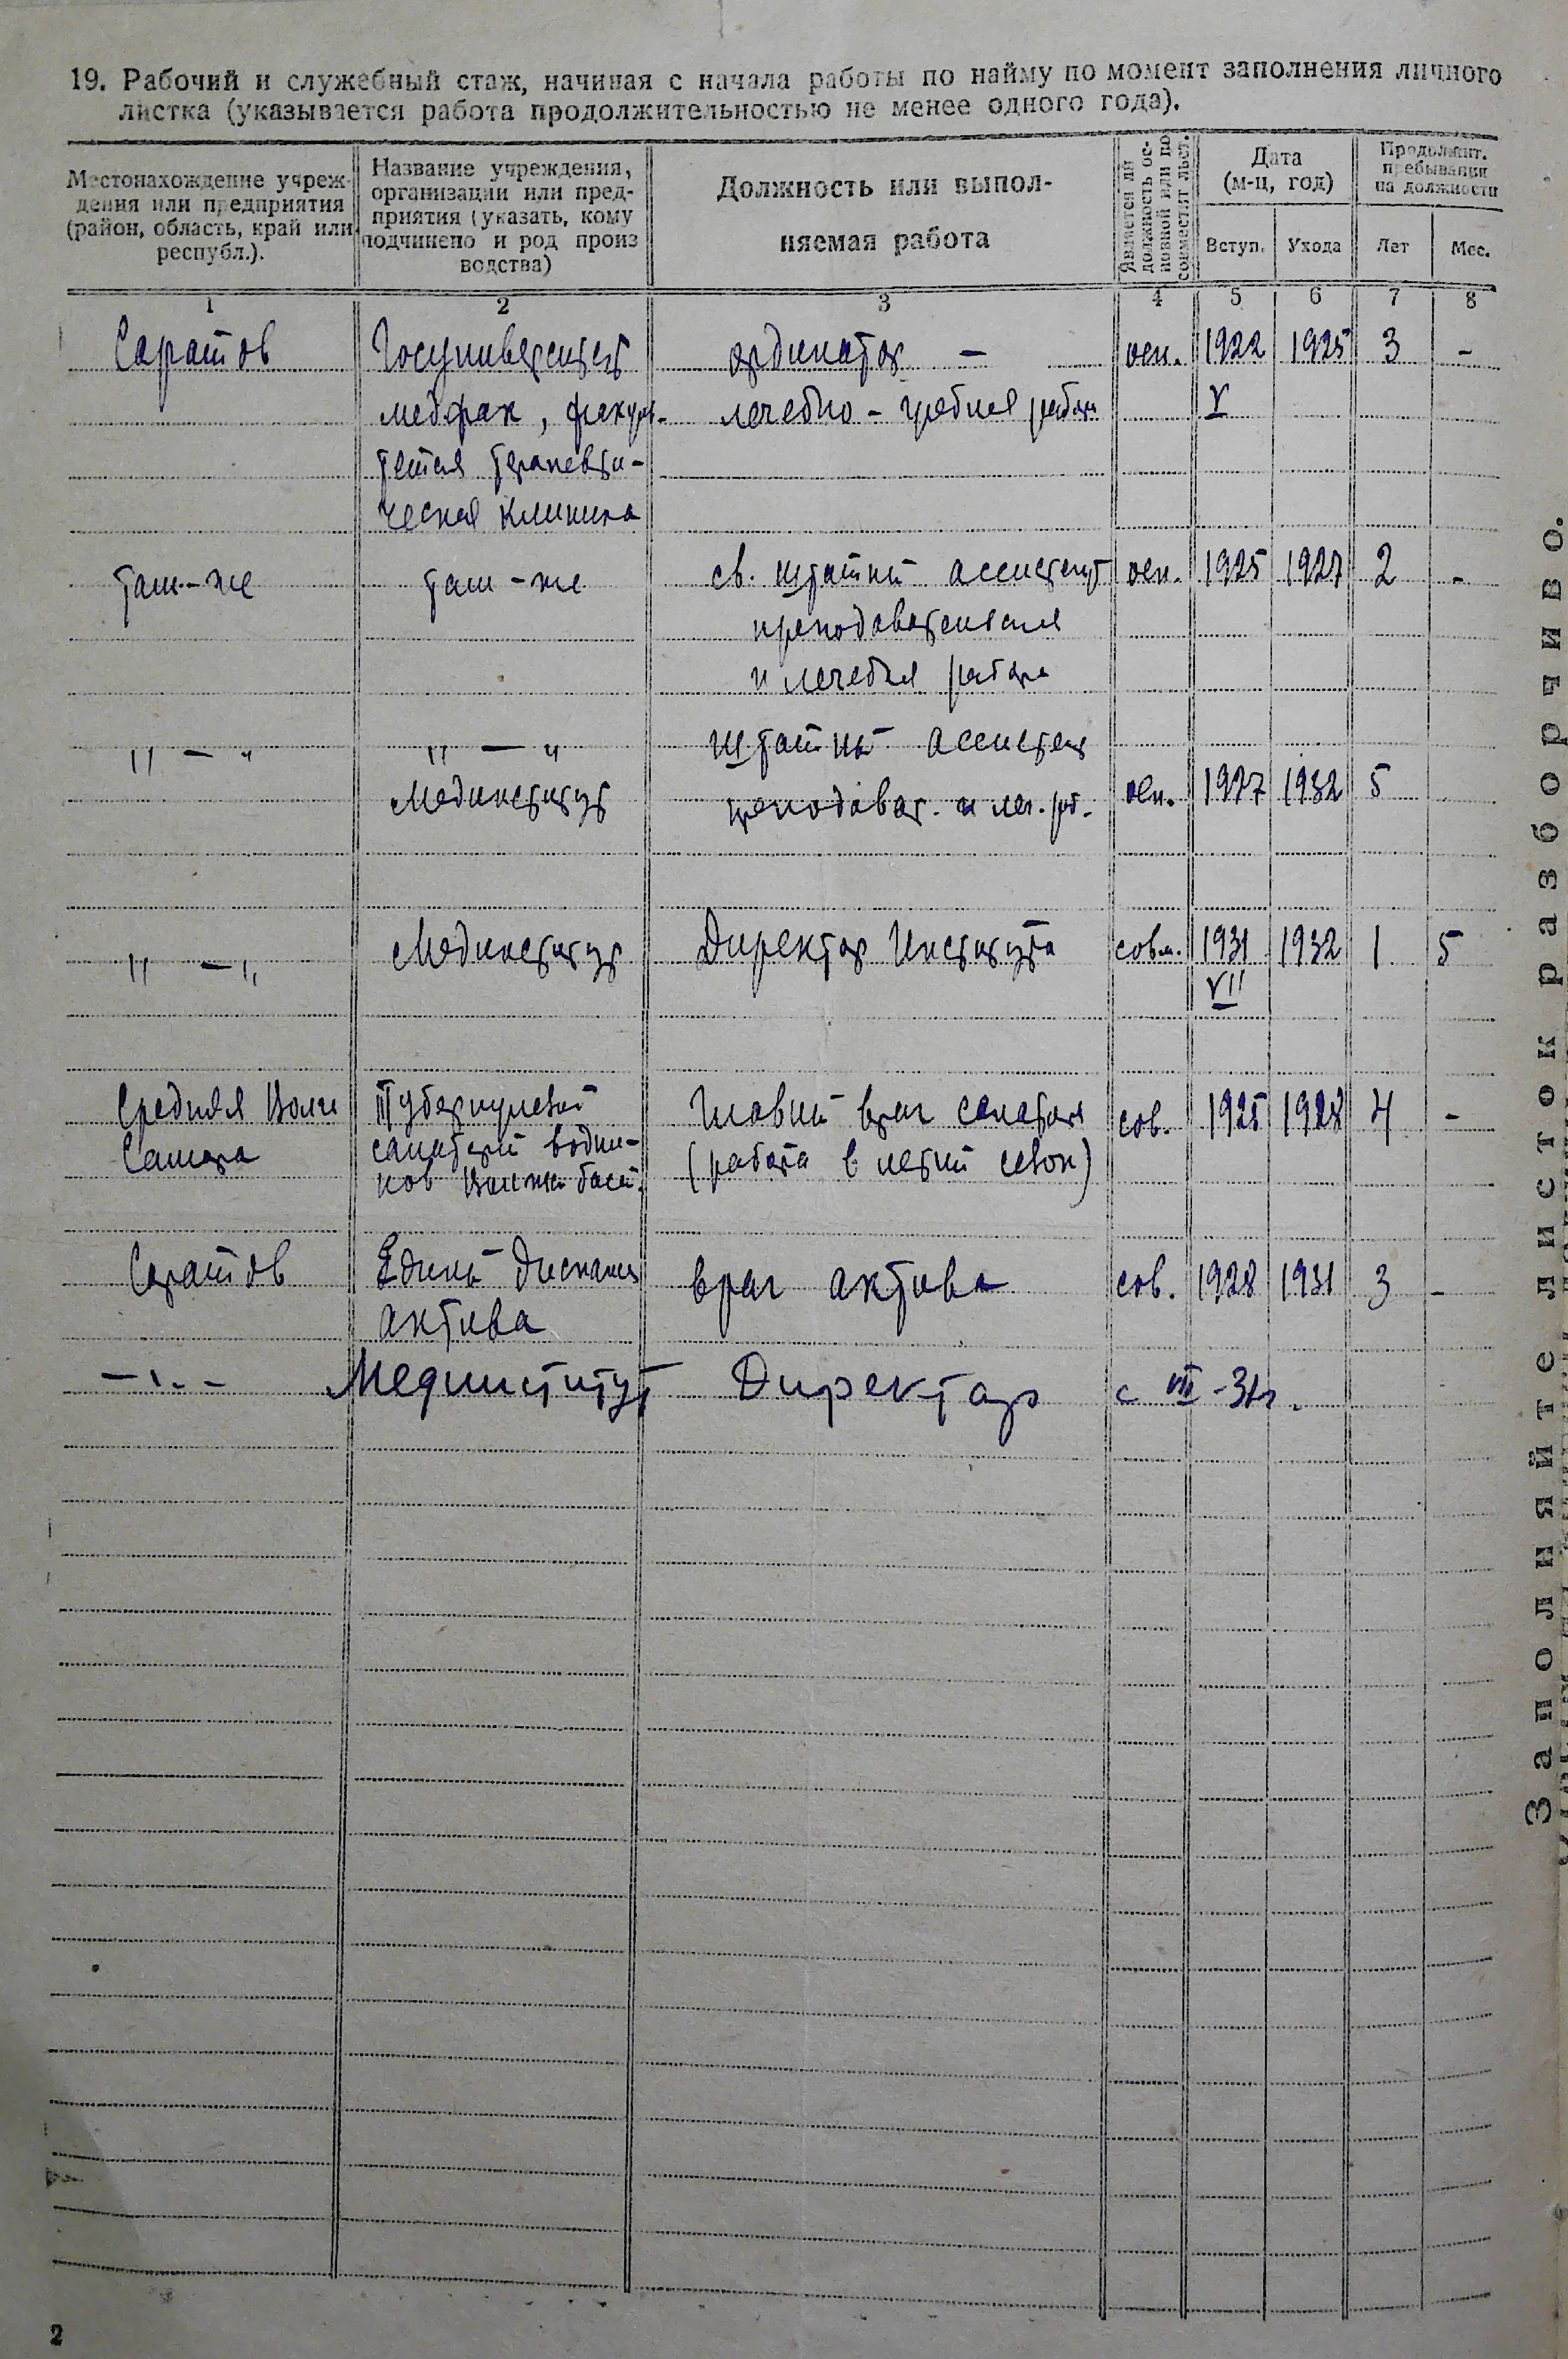 19. Рабочий и служебный стаж, начиная с начала работы по найму по момент заполнения личного
листка (указывается работа продолжительностью не менее одного года).
Местонахождение учреж-
дения или предприятия
(район, область, край или
республ.).
Название учреждения,
организации или пред-
приятия (указать, кому
подчинено и род произ
водства)
Должность или выпол-
няемая работа
Является ли
должность ос-
новной или по
совместительст.
Дата
(м-ц, год)
Вступ. Ухода
Продолжит.
пребывания
на должности
Лет Мес.
1 2 3 4 5 6 7 8
Саратов Госуниверситет ординатор – осн. 1922 1925 3 -
медфак, факуль- лечебно - учебная работа V
тетская терапевти-
ческая клиника
там-же там-же св. штатный ассистент осн. 1925 1927 2 -
преподавательская
и лечебная работа
" — " " — " штатный ассистент
Мединститут преподават. и леч. раб. осн. 1927 1932 5
" — " Мединститут Директор Института совм. 1931 1932 1 5
VII
Средняя Волга Туберкулезный Главный врач санатория сов. 1925 1928 4 -
Самара санаторий водни- (работа в летний сезон)
ков басс.
Саратов Единый диспансер врач актива сов. 1928 1931 3 -
актива
—"— Мединститут Директор с VII - 31г.
Заполняйте листок разборчиво.
2